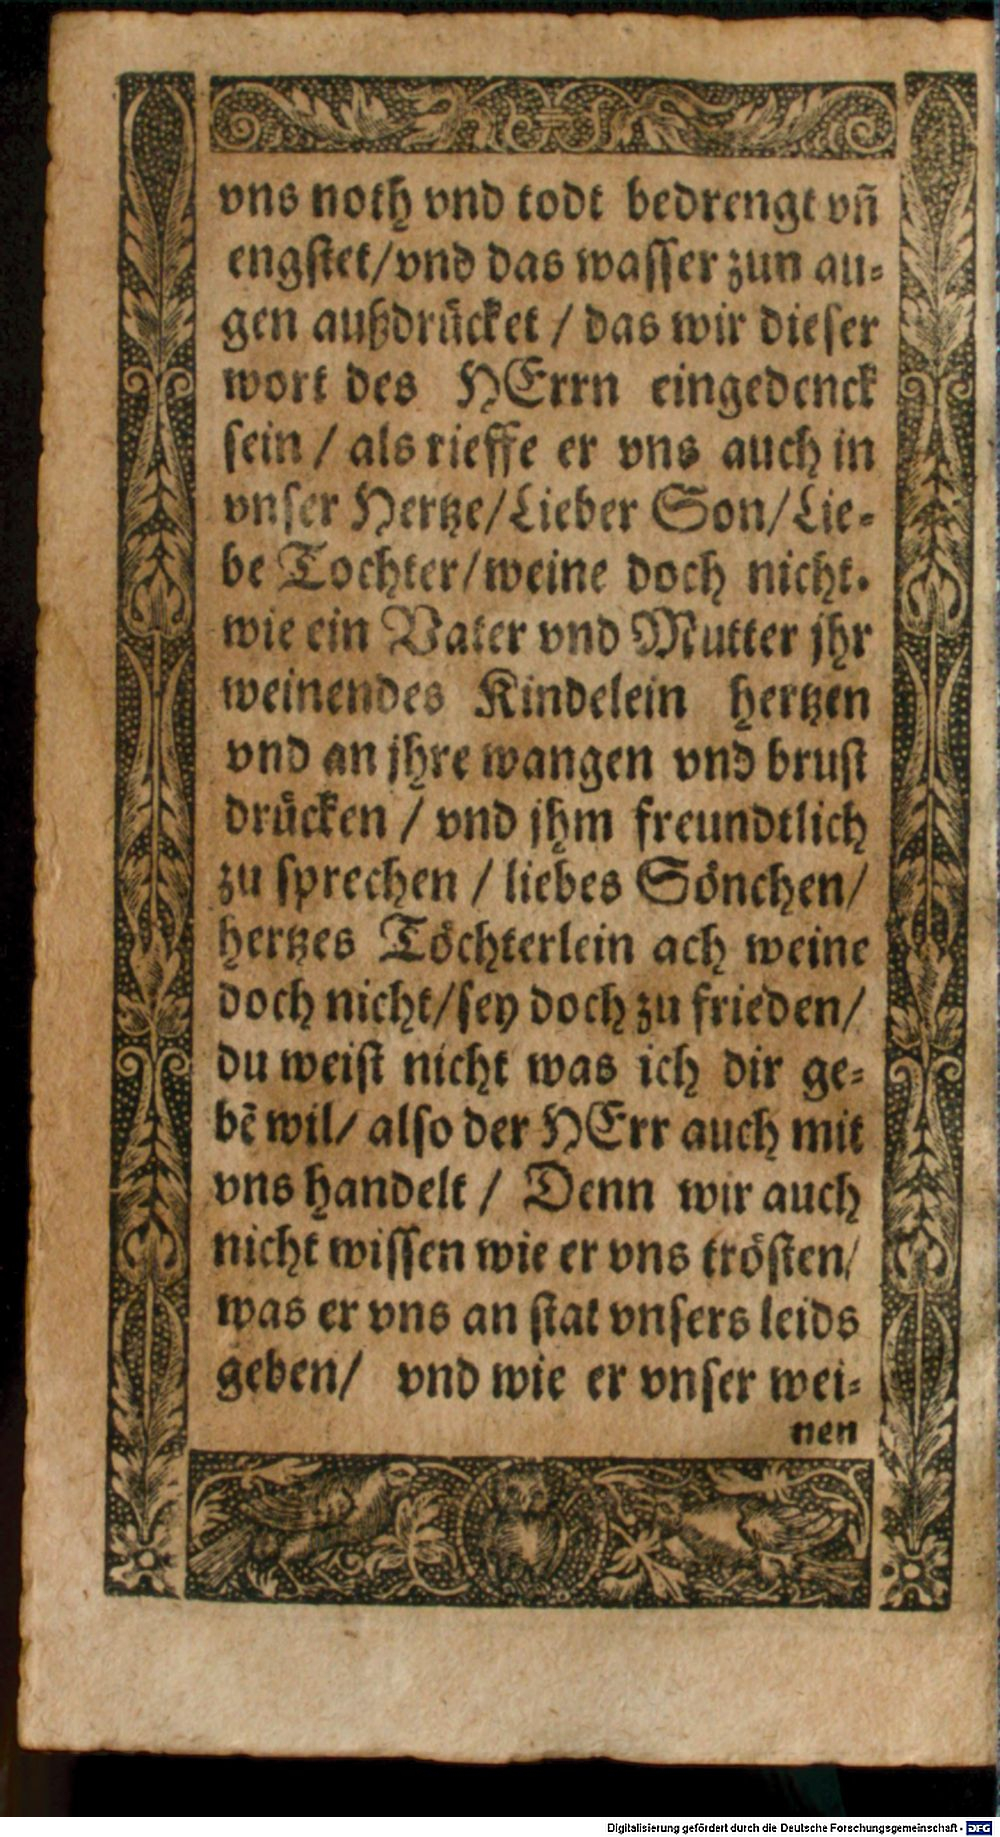 vns noth vnd todt bedrengt vñ
engstet/vnd das wasser zun au-
gen außdrücket / das wir dieser
wort des HErrn eingedenck
sein / als rieffe er vns auch in
vnser Hertze/Lieber Son/Lie-
be Tochter/weine doch nicht.
wie ein Vater vnd Mutter jhr
weinendes Kindelein hertzen
vnd an jhre wangen vnd brust
drücken / vnd jhm freundtlich
zu sprechen / liebes Sönchen/
hertzes Töchterlein ach weine
doch nicht/sey doch zu frieden/
du weist nicht was ich dir ge-
bẽ wil/ also der HErr auch mit
vns handelt / Denn wir auch
nicht wissen wie er vns trösten/
was er vns an stat vnsers leids
geben/ vnd wie er vnser wei-
nen
Digitalisierung gefördert durch die Deutsche Forschungsgemeinschaft - DFG